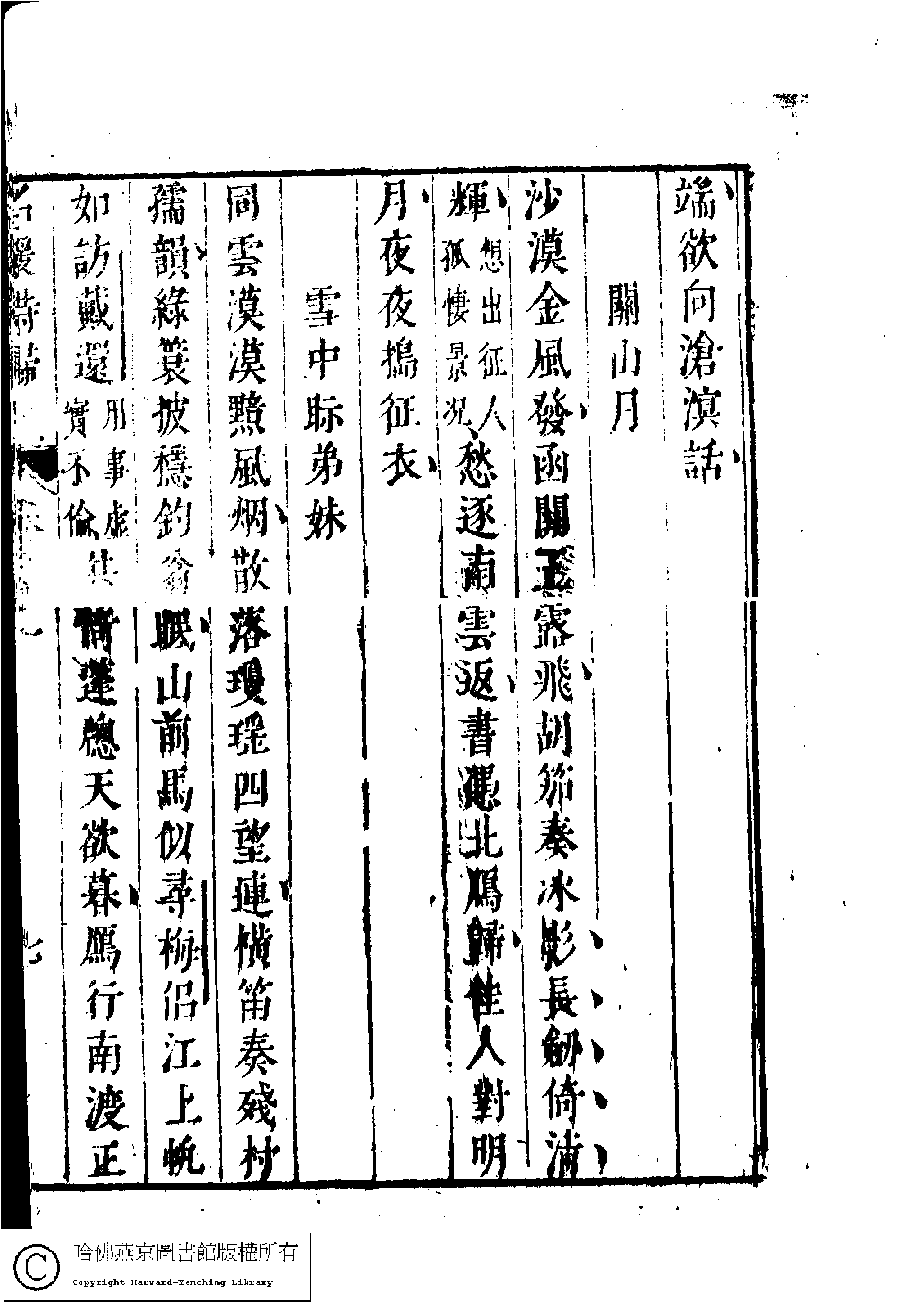 端欲向滄溟話
關山月
沙漠金風發函關玉露飛胡笳奏冰影長劒倚清
輝想出征人孤悽景况愁逐南雲返書憑北鴈歸佳人對明
月夜夜搗征衣
雪中眎弟妹
同雲漠漠黯風烟散落瓊瑤四望連橫笛奏殘村
孺韻綠蓑披穩釣翁眠山前馬似尋梅侣江上帆
如訪戴還用事虚實不倫共倚蓬窻天欲暮鴈行南渡正
名媛詩歸
七
哈佛燕京圖書館版權所有
Copyright Harvard-Yenching Library